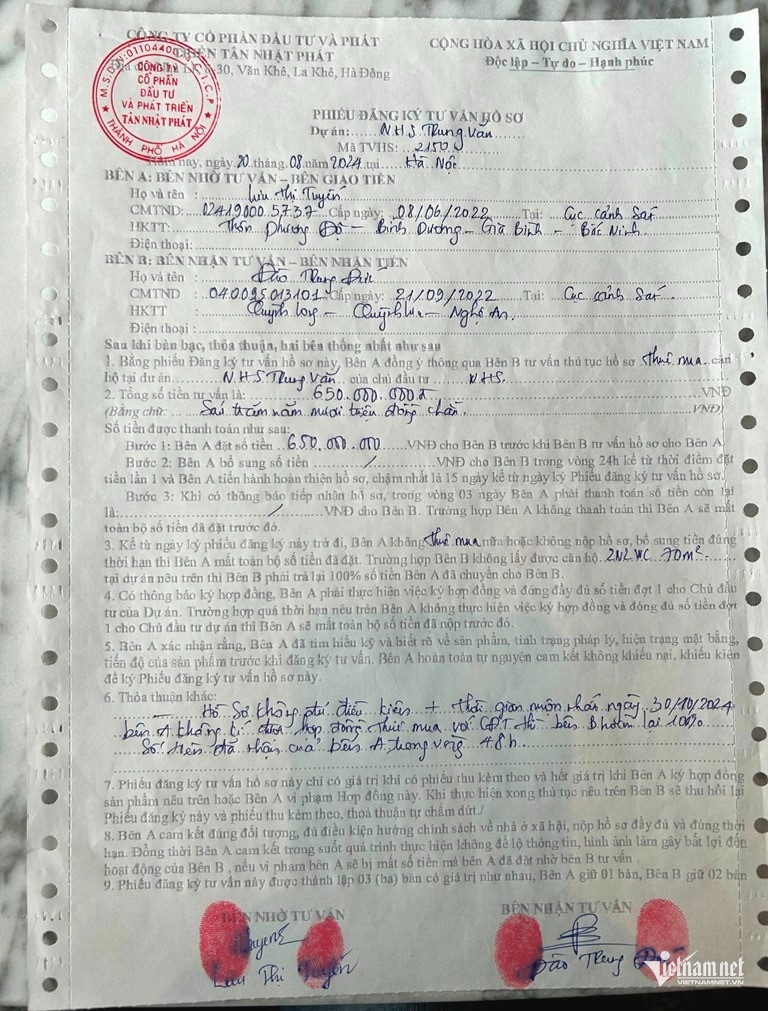 CÔNG TY CỔ PHẦN ĐẦU TƯ VÀ PHÁT
TRIỂN TÂN NHẬT PHÁT
30, Văn Khê, La Khê, Hà Đông
CỘNG HÒA XÃ HỘI CHỦ NGHĨA VIỆT NAM
Độc lập – Tự do – Hạnh phúc
CÔNG TY
CỔ PHẦN
ĐẦU TƯ
VÀ PHÁT TRIỂN
TÂN NHẬT PHÁT
THÀNH PHỐ HÀ NỘI
PHIẾU ĐĂNG KÝ TƯ VẤN HỒ SƠ
Dự án: NHS Trung Văn
Mã TVHS: 2150
Hôm nay, ngày 20 tháng 08 năm 2024 tại Hà Nội
BÊN A: BÊN NHỜ TƯ VẤN – BÊN GIAO TIỀN
Họ và tên : Lưu Thị Tuyến
CMTND: 024190005737 Cấp ngày: 08/06/2022 Tại: Cục cảnh Sát
HKTT : Thôn Phương Độ – Bình Dương – Gia Bình – Bắc Ninh
Điện thoại:
BÊN B: BÊN NHẬN TƯ VẤN – BÊN NHẬN TIỀN
Họ và tên : Đào Trung Đức
CMTND : 040095013101 Cấp ngày: 21/09/2022 Tại: Cục cảnh Sát
HKTT : Quỳnh Long – Quỳnh Lưu – Nghệ An.
Điện thoại :
Sau khi bàn bạc, thỏa thuận, hai bên thống nhất như sau
1. Bằng phiếu Đăng ký tư vấn hồ sơ này, Bên A đồng ý thông qua Bên B tư vấn thủ tục hồ sơ thuê mua căn
hộ tại dự án NHS Trung Văn của chủ đầu tư NHS.
2. Tổng số tiền tư vấn là: 650.000.000đ VNĐ
(Bằng chữ: Sáu trăm năm mươi triệu đồng chẵn. VNĐ)
Số tiền được thanh toán như sau:
Bước 1: Bên A đặt số tiền 650.000.000 VNĐ cho Bên B trước khi Bên B tư vấn hồ sơ cho Bên A.
Bước 2: Bên A bổ sung số tiền / VNĐ cho Bên B trong vòng 24h kể từ thời điểm đặt
tiền lần 1 và Bên A tiến hành hoàn thiện hồ sơ, chậm nhất là 15 ngày kể từ ngày ký Phiếu đăng ký tư vấn hồ sơ.
Bước 3: Khi có thông báo tiếp nhận hồ sơ, trong vòng 03 ngày Bên A phải thanh toán số tiền còn lại
là: / VNĐ cho Bên B. Trường hợp Bên A không thanh toán thì Bên A sẽ mất
toàn bộ số tiền đã đặt trước đó.
3. Kể từ ngày ký phiếu đăng ký này trở đi, Bên A không thuê mua nữa hoặc không nộp hồ sơ, bổ sung tiền đúng
thời hạn thì Bên A mất toàn bộ số tiền đã đặt. Trường hợp Bên B không lấy được căn hộ 2N2WC 70m²
tại dự án nêu trên thì Bên B phải trả lại 100% số tiền Bên A đã chuyển cho Bên B.
4. Có thông báo ký hợp đồng, Bên A phải thực hiện việc ký hợp đồng và đóng đầy đủ số tiền đợt 1 cho Chủ đầu
tư của Dự án. Trường hợp quá thời hạn nêu trên Bên A không thực hiện việc ký hợp đồng và đóng đủ số tiền đợt
1 cho Chủ đầu tư dự án thì Bên A sẽ mất toàn bộ số tiền đã nộp trước đó.
5. Bên A xác nhận rằng, Bên A đã tìm hiểu kỹ và biết rõ về sản phẩm, tình trạng pháp lý, hiện trạng mặt bằng,
tiến độ của sản phẩm trước khi đăng ký tư vấn. Bên A hoàn toàn tự nguyện cam kết không khiếu nại, khiếu kiện
để ký Phiếu đăng ký tư vấn hồ sơ này.
6. Thỏa thuận khác:
Hồ Sơ không đủ điều kiện + thời gian muộn nhất ngày 30/10/2024
bên A không kí được hợp đồng Thuê mua với CĐT thì bên B hoàn lại 100%
Số tiền đã nhận của bên A trong vòng 48h.
7. Phiếu đăng ký tư vấn hồ sơ này chỉ có giá trị khi có phiếu thu kèm theo và hết giá trị khi Bên A ký hợp đồng
sản phẩm nêu trên hoặc Bên A vi phạm Hợp đồng này. Khi thực hiện xong thủ tục nêu trên Bên B sẽ thu hồi lại
Phiếu đăng ký này và phiếu thu kèm theo, thoả thuận tự chấm dứt./
8. Bên A cam kết đúng đối tượng, đủ điều kiện hưởng chính sách về nhà ở xã hội, nộp hồ sơ đầy đủ và đúng thời
hạn. Đồng thời Bên A cam kết trong suốt quá trình thực hiện không để lộ thông tin, hình ảnh làm gây bất lợi đến
hoạt động của Bên B , nếu vi phạm bên A sẽ bị mất số tiền mà bên A đã đặt nhờ bên B tư vấn .
9. Phiếu đăng ký tư vấn này được thành lập 03 (ba) bản có giá trị như nhau, Bên A giữ 01 bản, Bên B giữ 02 bản
BÊN NHỜ TƯ VẤN
BÊN NHẬN TƯ VẤN
Lưu Thị Tuyến
Đào Trung Đức
Vietnamnet
VIETNAMNET.VN